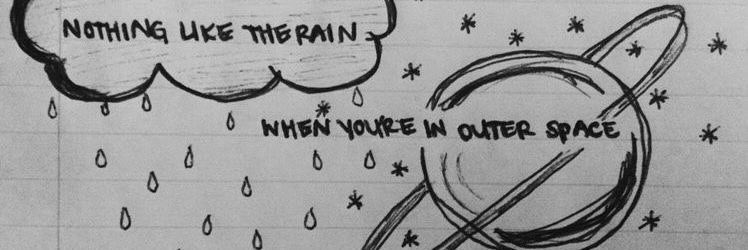 NOTHING LIKE THE RAIN
WHEN YOU'RE IN OUTER SPACE